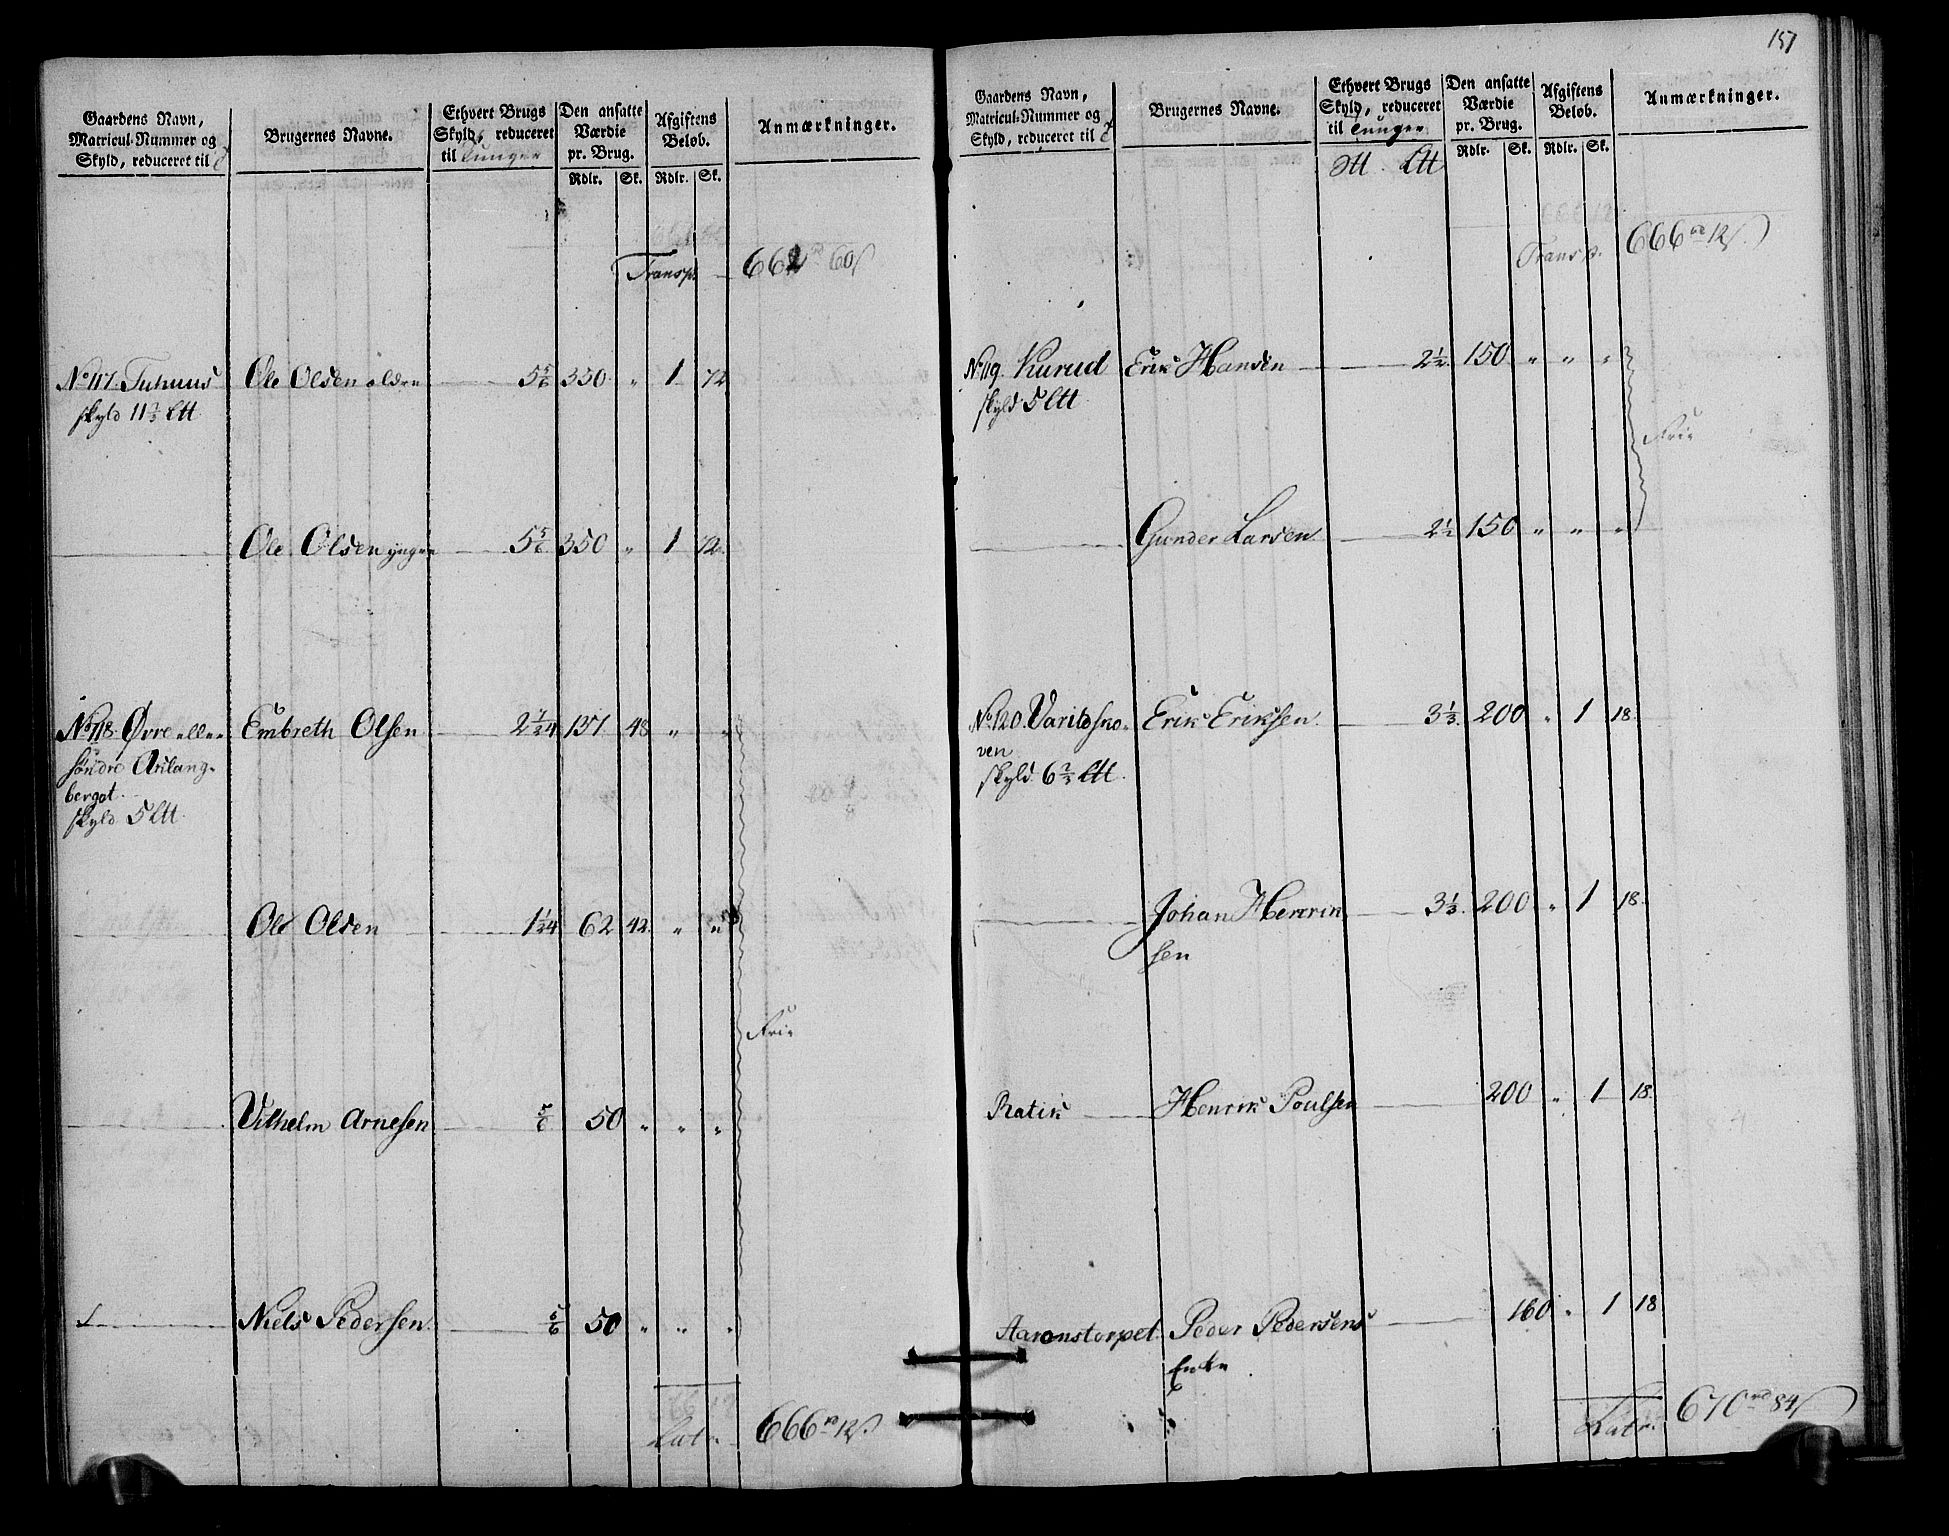 Gaardens Navn,
Matricul-Nummer og
Skyld, reduceret til
Brugernes Navne.
Ethvert Brugs
Skyld, reduceret
til Tunger
Den ansatte
Værdie
pr. Brug.
Rdlr. Sk.
Afgiftens
Beløb.
Rdlr. Sk.
Anmærkninger.
Transp. 662 rd 60 s
No 117. Tuhuus Ole Olsen eldre 5 5/6 350 " 1 72
skyld 11 2/3 Ltt
Ole Olsen yngre 5 5/6 350 " 1 72
No 118. Øvre eller Embreth Olsen 2 7/24 137 48 " "
søndre Aslang-
berget
skyld 5 Ltt
Ole Olsen 1 1/24 62 42 " "
Frie
Vilhelm Arnesen 5/6 50 " " "
Niels Pedersen 5/6 50 " " "
Latr. 666 rd 12 s
157
Gaardens Navn,
Matricul-Nummer og
Skyld, reduceret til
Brugernes Navne.
Ethvert Brugs
Skyld, reduceret
til Tunger
Ltt
Den ansatte
Værdie
pr. Brug.
Rdlr. Sk.
Afgiftens
Beløb.
Rdlr. Sk.
Anmærkninger.
Transp. 666 rd 12 s
No 119. Kurud Erik Hansen 2 1/2 150 " " "
skyld 5 Ltt
Frie
Gunder Larsen 2 1/2 150 " " "
No 120. Varildsko- Erik Eriksen 3 1/3 200 " 1 18
ven
skyld 6 2/3 Ltt
Johan Henrik 3 1/3 200 " 1 18
sen
Ratik Henrik Poulsen 200 " 1 18
Aaronstorpet Peder Pedersens 160 " 1 18
Enke
Latr. 670 rd 84 s